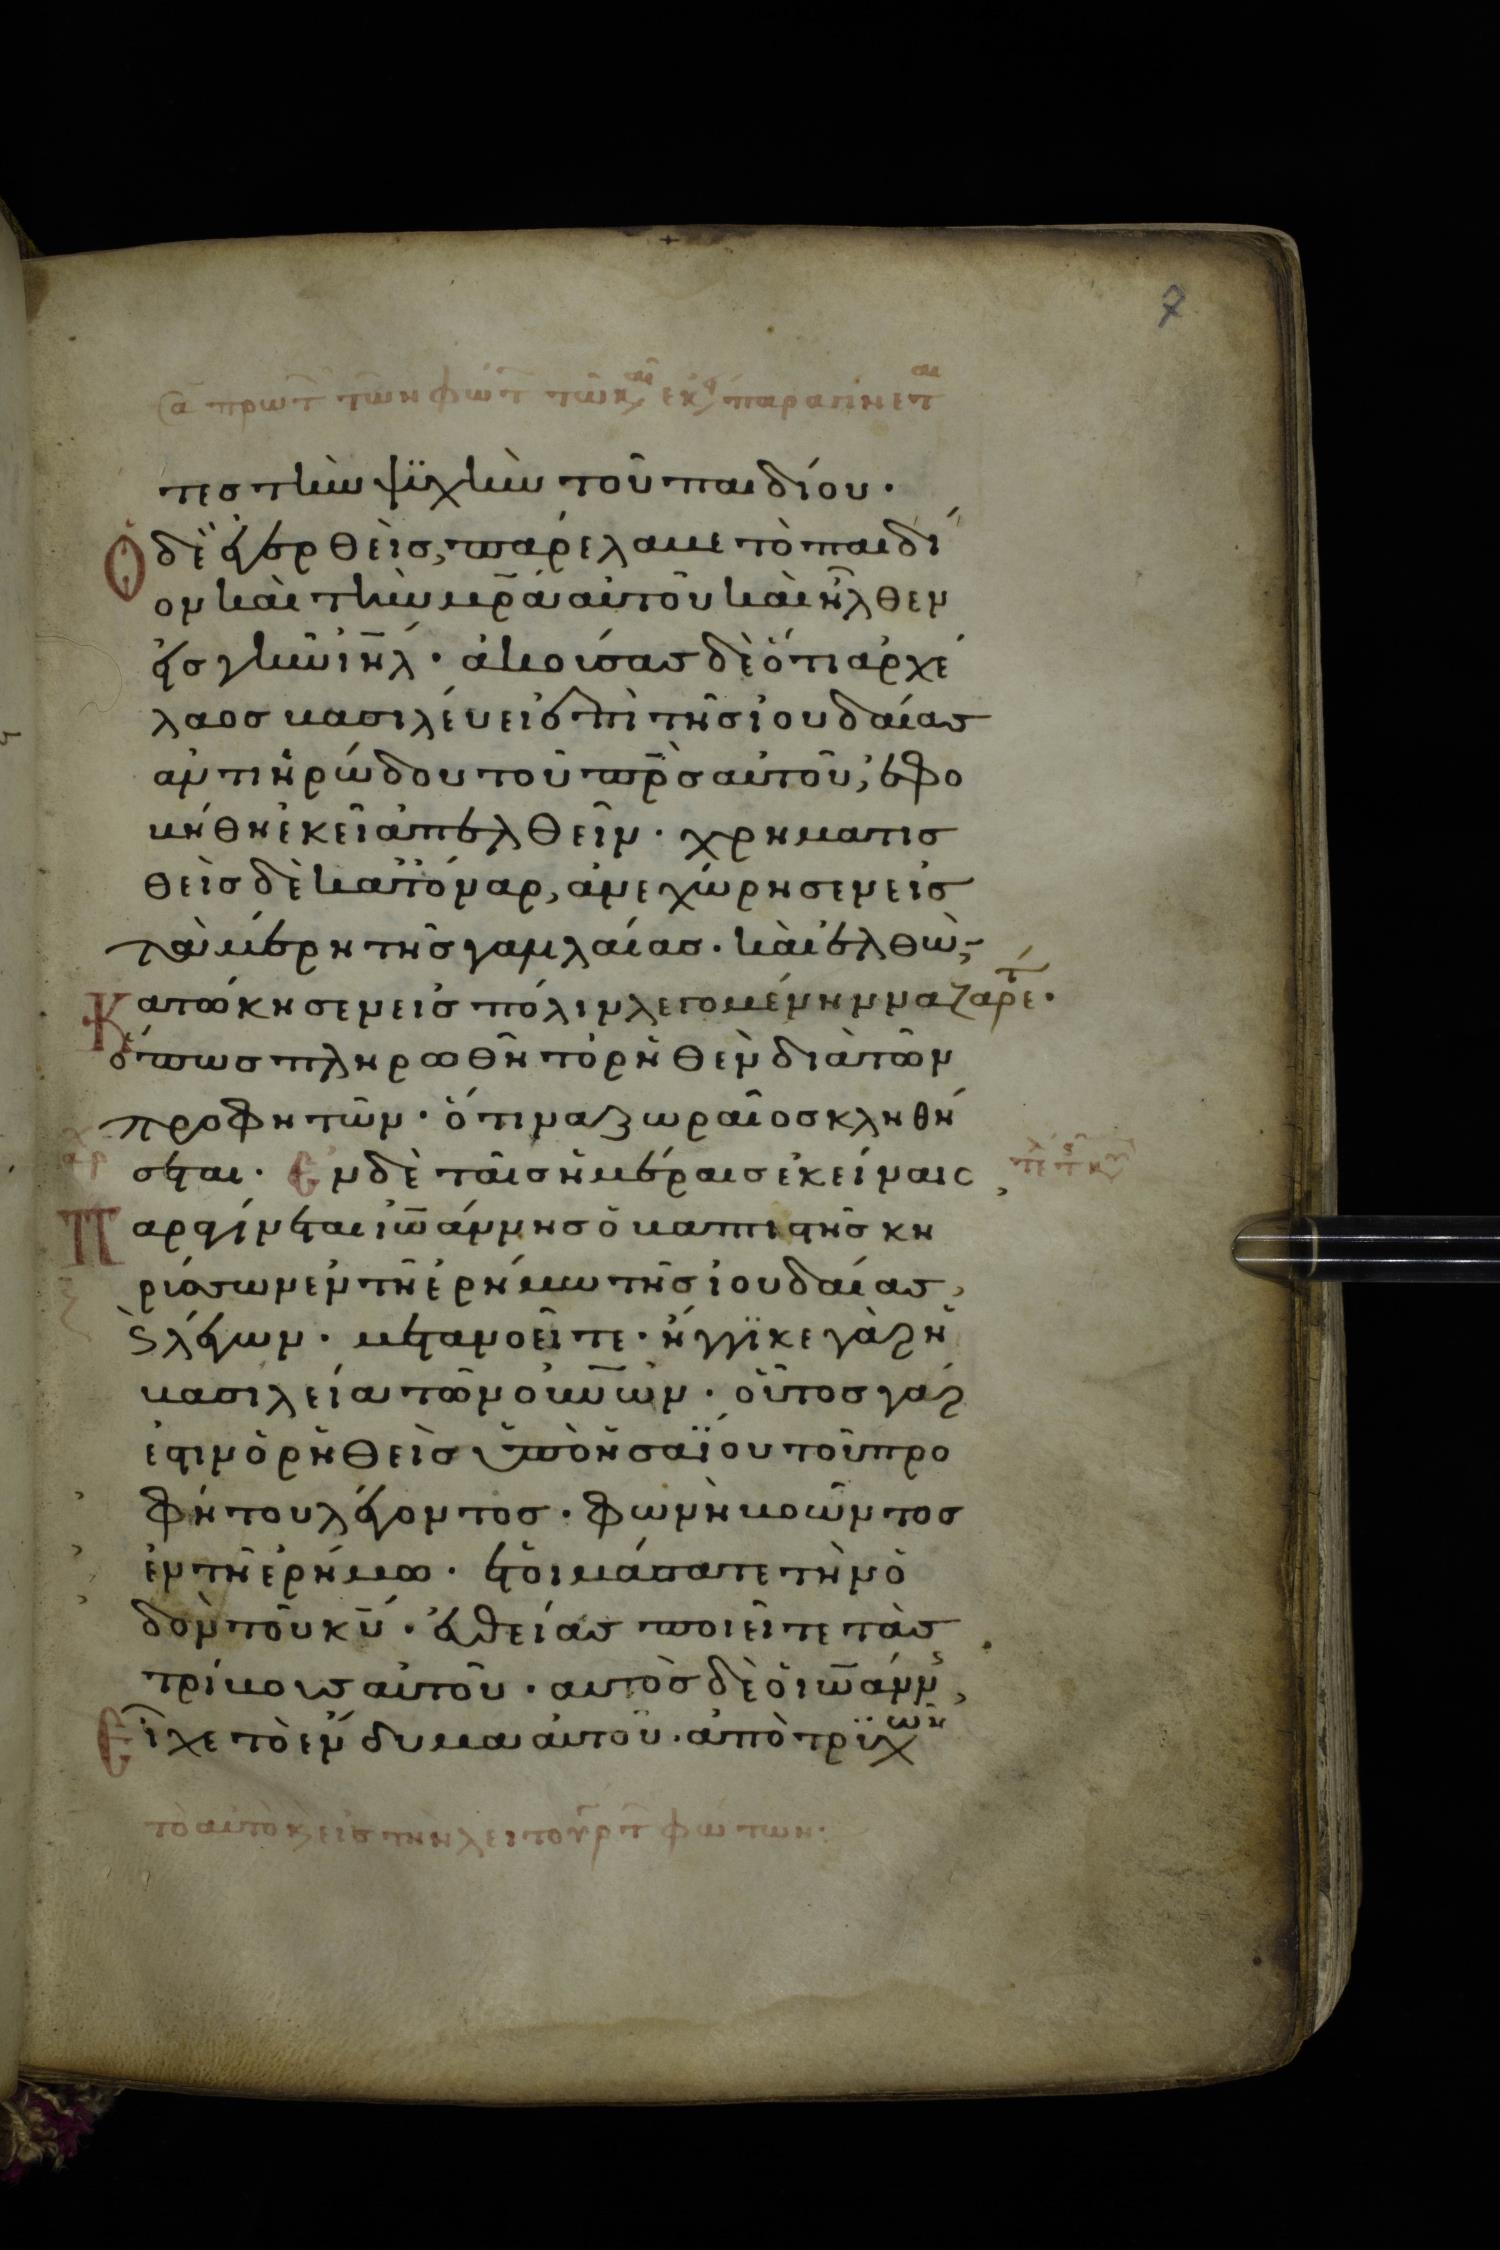 7
τες τὴν ψϋχὴν τοῦ παιδίου·
Ὁ δὲ ἐγερθεὶς, παρέλαβε τὸ παιδί
ον καὶ τὴν μρ̅α αὐτοῦ καὶ ἦλθεν
εἰς γῆν ιη̅λ· ἀκούσας δὲ ὅτι ἀρχέ
λαος βασιλεύει ἐπὶ τῆς ἰουδαίας
ἀντὶ ἡρώδου τοῦ πρ̅ς αὐτοῦ, ἐφο
βήθη ἐκεῖ ἀπελθεῖν· χρηματισ
θεὶς δὲ κατ᾽ ὄναρ, ἀνεχώρησεν εἰς
τὰ μέρη τῆς γαλιλαίας· καὶ ἐλθὼν
Κατώκησεν εἰς πόλιν λεγομένην ναζαρέτ·
ὅπως πληρωθῆ τὸ ῥηθὲν διὰ τῶν
προφητῶν· ὅτι ναζωραῖος κληθή
σεται· Ἐν δὲ ταῖς ἡμέραις ἐκείναις
Παραγίνεται ἰω̅άννης ὁ βαπτιστὴς κη
ρύσσων ἐν τῆ ἐρήμω τῆς ἰουδαίας,
λέγων· μετανοεῖτε· ἤγγϊκε γὰρ ἡ
βασιλεία τῶν οὐν̅ῶν· οὗτος γάρ
ἐστιν ὁ ῥηθεὶς ὑπὸ ἡσαΐου τοῦ προ
φήτου λέγοντος· φωνὴ βοῶντος
ἐν τῆ ἐρήμω· ἑτοιμάσατε τὴν ὁ
δὸν κυ̅· εὐθείας ποιεῖτε τὰς
τρίβους αὐτοῦ· αὐτὸς δὲ ὁ ἰω̅άννης,
Εἶχε τὸ ἔνδυμα αὐτοῦ· ἀπὸ τρϊχῶν
τὸ αὐτὸ κ εἰς τὴν λειτουργ τ φώτων·